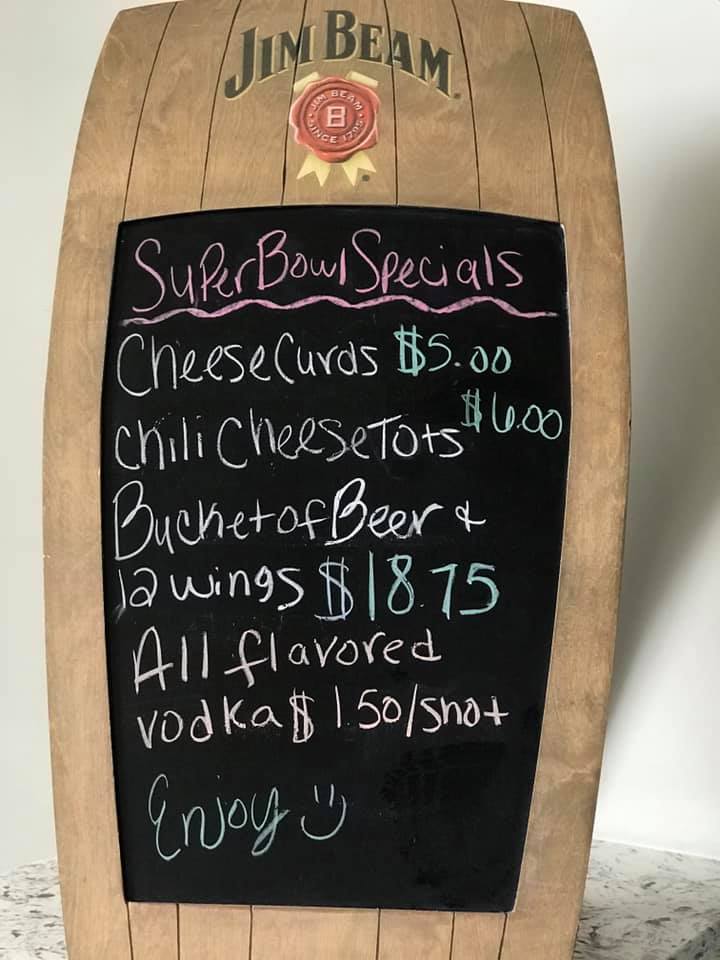 JIM BEAM
JIM BEAM
B
SINCE 1795
SuperBowl Specials
Cheese Curds $5.00
Chili Cheese Tots $6.00
Bucket of Beer &
12 wings $18.75
All flavored
vodka $1.50/shot
Enjoy